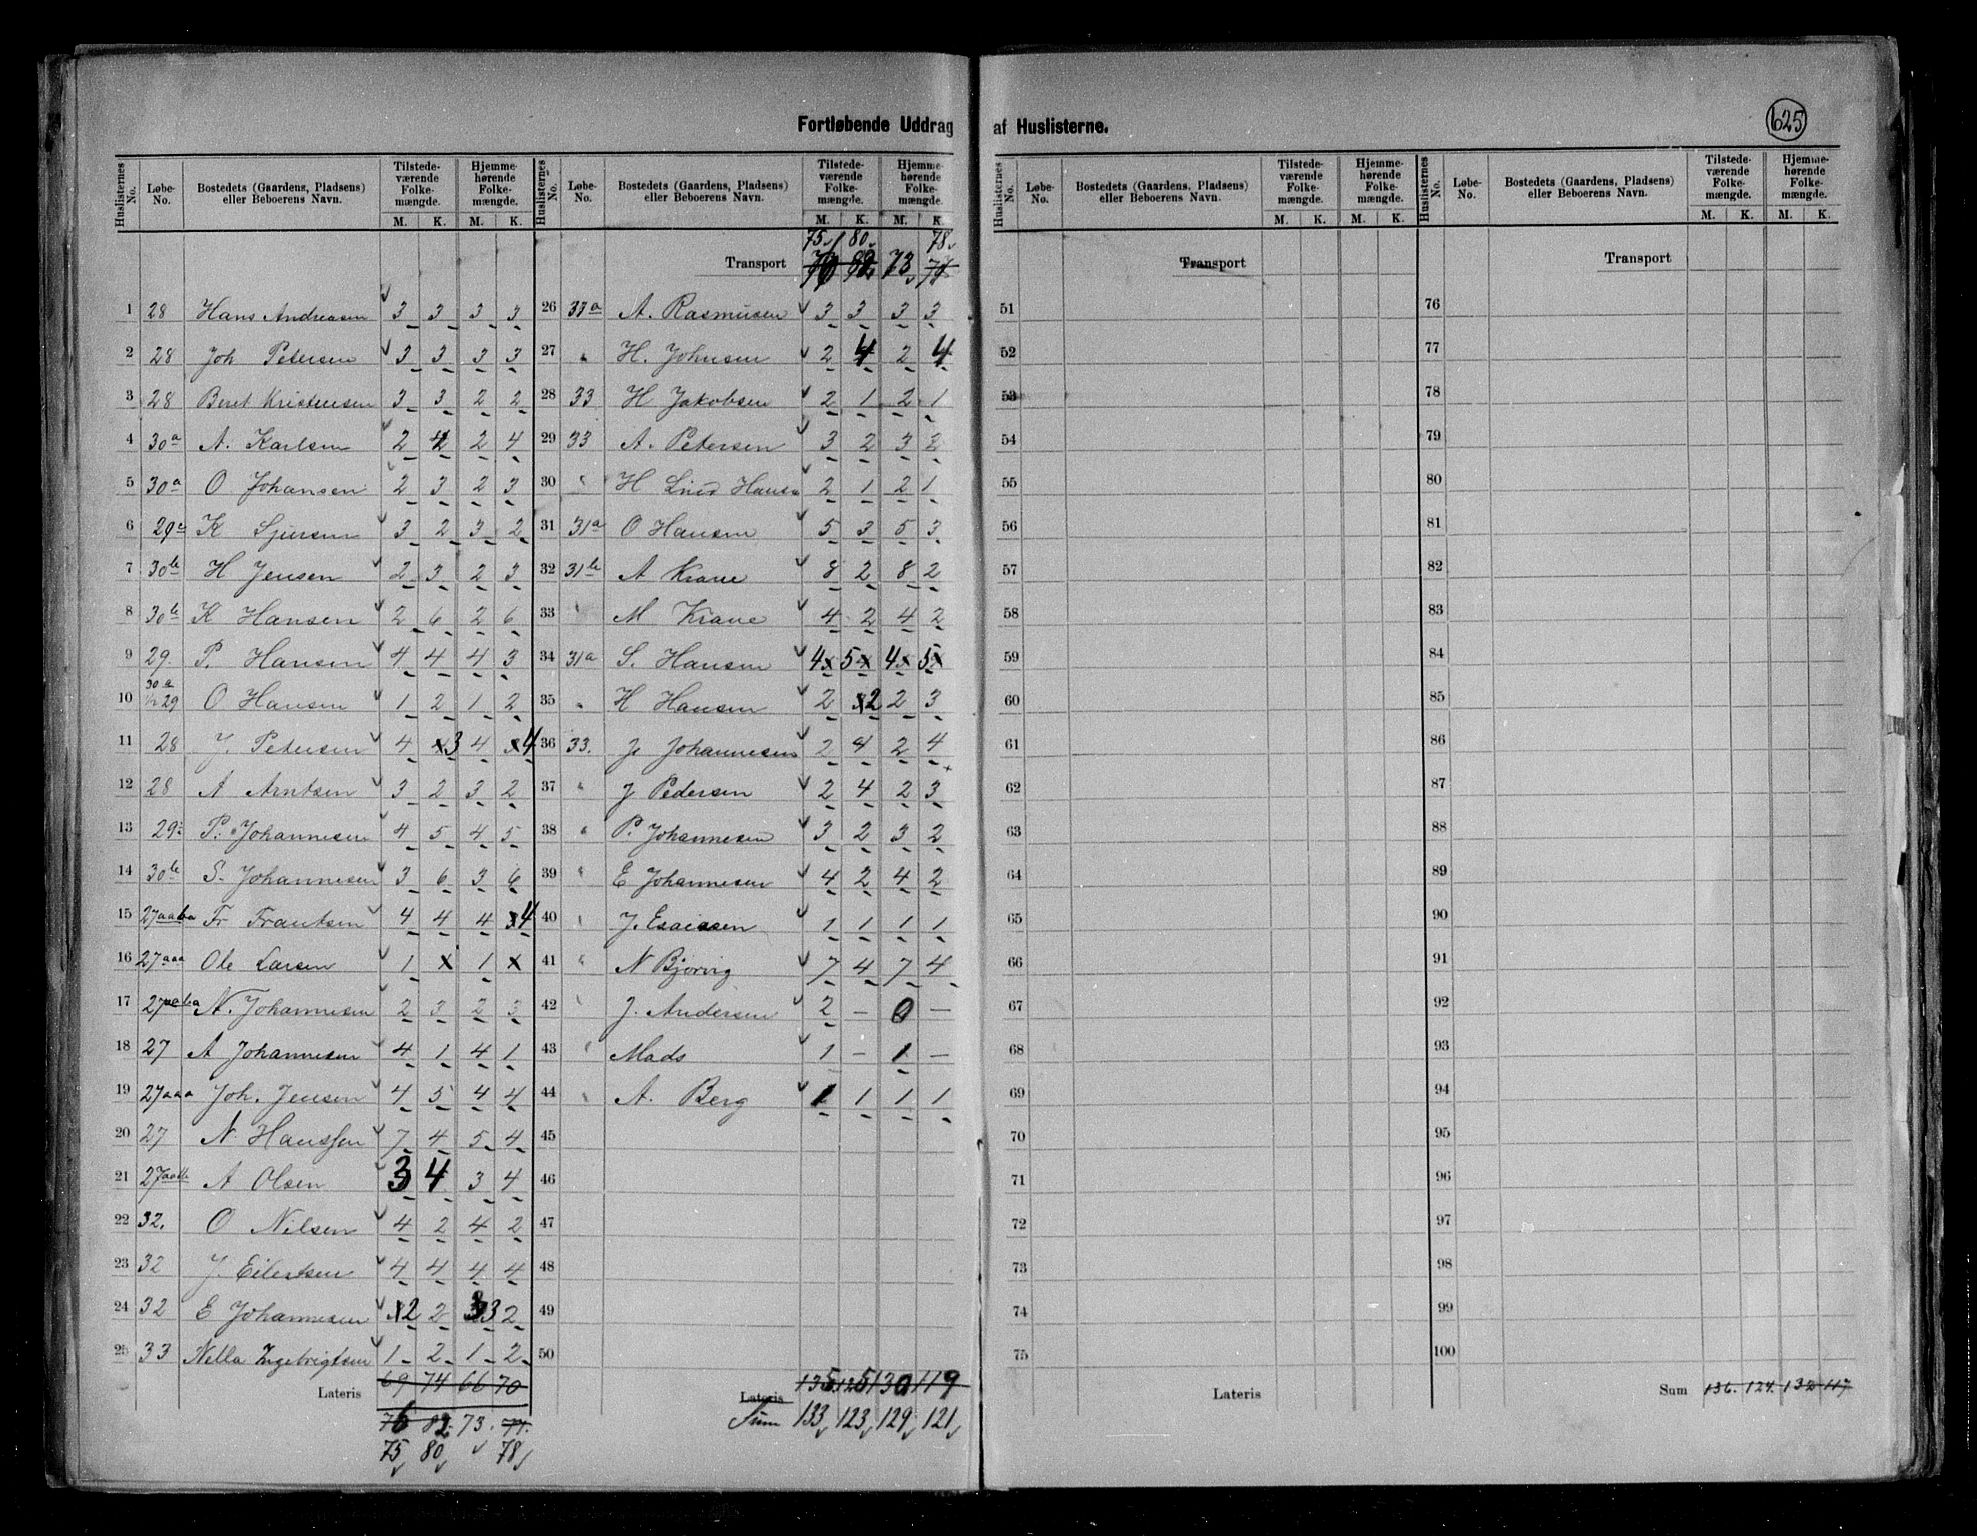 Fortløbende Uddrag af Huslisterne.
625
Huslisternes No. Løbe-No. Bostedets (Gaardens, Pladsens) eller Beboerens Navn. Tilstedeværende Folkemængde. M. K. Hjemmehørende Folkemængde. M. K.
1 28 Hans Andreasen 3 3 3 3
2 28 Joh Petersen 3 3 3 3
3 28 Beret Kristensen 3 3 2 2
4 30a A. Karlsen 2 2 4
5 30a O Johansen 2 3 2 3
6 29 K Sjursen 3 2 3 2
7 30b H Jensen 2 3 2 3
8 30b K Hansen 2 6 2 6
9 29. P. Hansen 4 4 4 3
10 30a 29 O Hansen 1 2 1 2
11 28 J. Petersen 4 x3 4 x4
12 28 A Arntsen 3 2 3 2
13 29 P. Johannesen 4 5 4 5
14 30b S. Johannesen 3 6 3 6
15 27aaba Fr Frantsen 4 4 4 4
16 27aaa Ole Larsen 1 x 1 x
17 27 N. Johannesen 2 3 2 3
18 27 A Johannesen 4 1 4 1
19 27aaa Joh. Jensen 4 5 4 4
20 27 N. Hanssen 7 4 5 4
21 27 A Olsen 3 4 3 4
22 32. O Nilsen 4 2 4 2
23 32 J. Eilertsen 4 4 4 4
24 32 E Johannesen 2 2 3 2
25 33 Nella Ingebrigtsen 1 2 1 2
Lateris 69 74 66 70
76 82 73 77.
75 80 78
Huslisternes No. Løbe-No. Bostedets (Gaardens, Pladsens) eller Beboerens Navn. Tilstedeværende Folkemængde. M. K. Hjemmehørende Folkemængde. M. K.
75 80 78
Transport 76 82 73 77
26 33a A. Rasmusen 3 3 3 3
27 " H. Johnsen 2 4 2 4
28 33 H Jakobsen 2 1 2 1
29 33 A. Petersen 3 2 3 2
30 " H Lind Hansen 2 1 2 1
31 31a O Hansen 5 3 5 3
32 31b A Krane 8 2 8 2
33 " M Krane 4 2 4 2
34 31a S. Hansen 4x 5x 4x 5x
35 " H Hansen 2 2 2 3
36 33. J. Johannesen 2 4 2 4
37 " J Pedersen 2 4 2 3
38 " P. Johannesen 3 2 3 2
39 " E Johannesen 4 2 4 2
40 " J. Esaissen 1 1 1 1
41 " N Bjøring 7 4 7 4
42 " J. Andersen 2 — 0 —
43 " Mads 1 — 1 —
44 " A. Berg 1 1 1 1
45
46
47
48
49
50
Lateris 135 125 130 119
Sum 133 123 129 121
Huslisternes No. Løbe-No. Bostedets (Gaardens, Pladsens) eller Beboerens Navn. Tilstedeværende Folkemængde. M. K. Hjemmehørende Folkemængde. M. K.
Transport
51
52
53
54
55
56
57
58
59
60
61
62
63
64
65
66
67
68
69
70
71
72
73
74
75
Lateris
Huslisternes No. Løbe-No. Bostedets (Gaardens, Pladsens) eller Beboerens Navn. Tilstedeværende Folkemængde. M. K. Hjemmehørende Folkemængde. M. K.
Transport
76
77
78
79
80
81
82
83
84
85
86
87
88
89
90
91
92
93
94
95
96
97
98
99
100
Sum 136. 124. 132 117